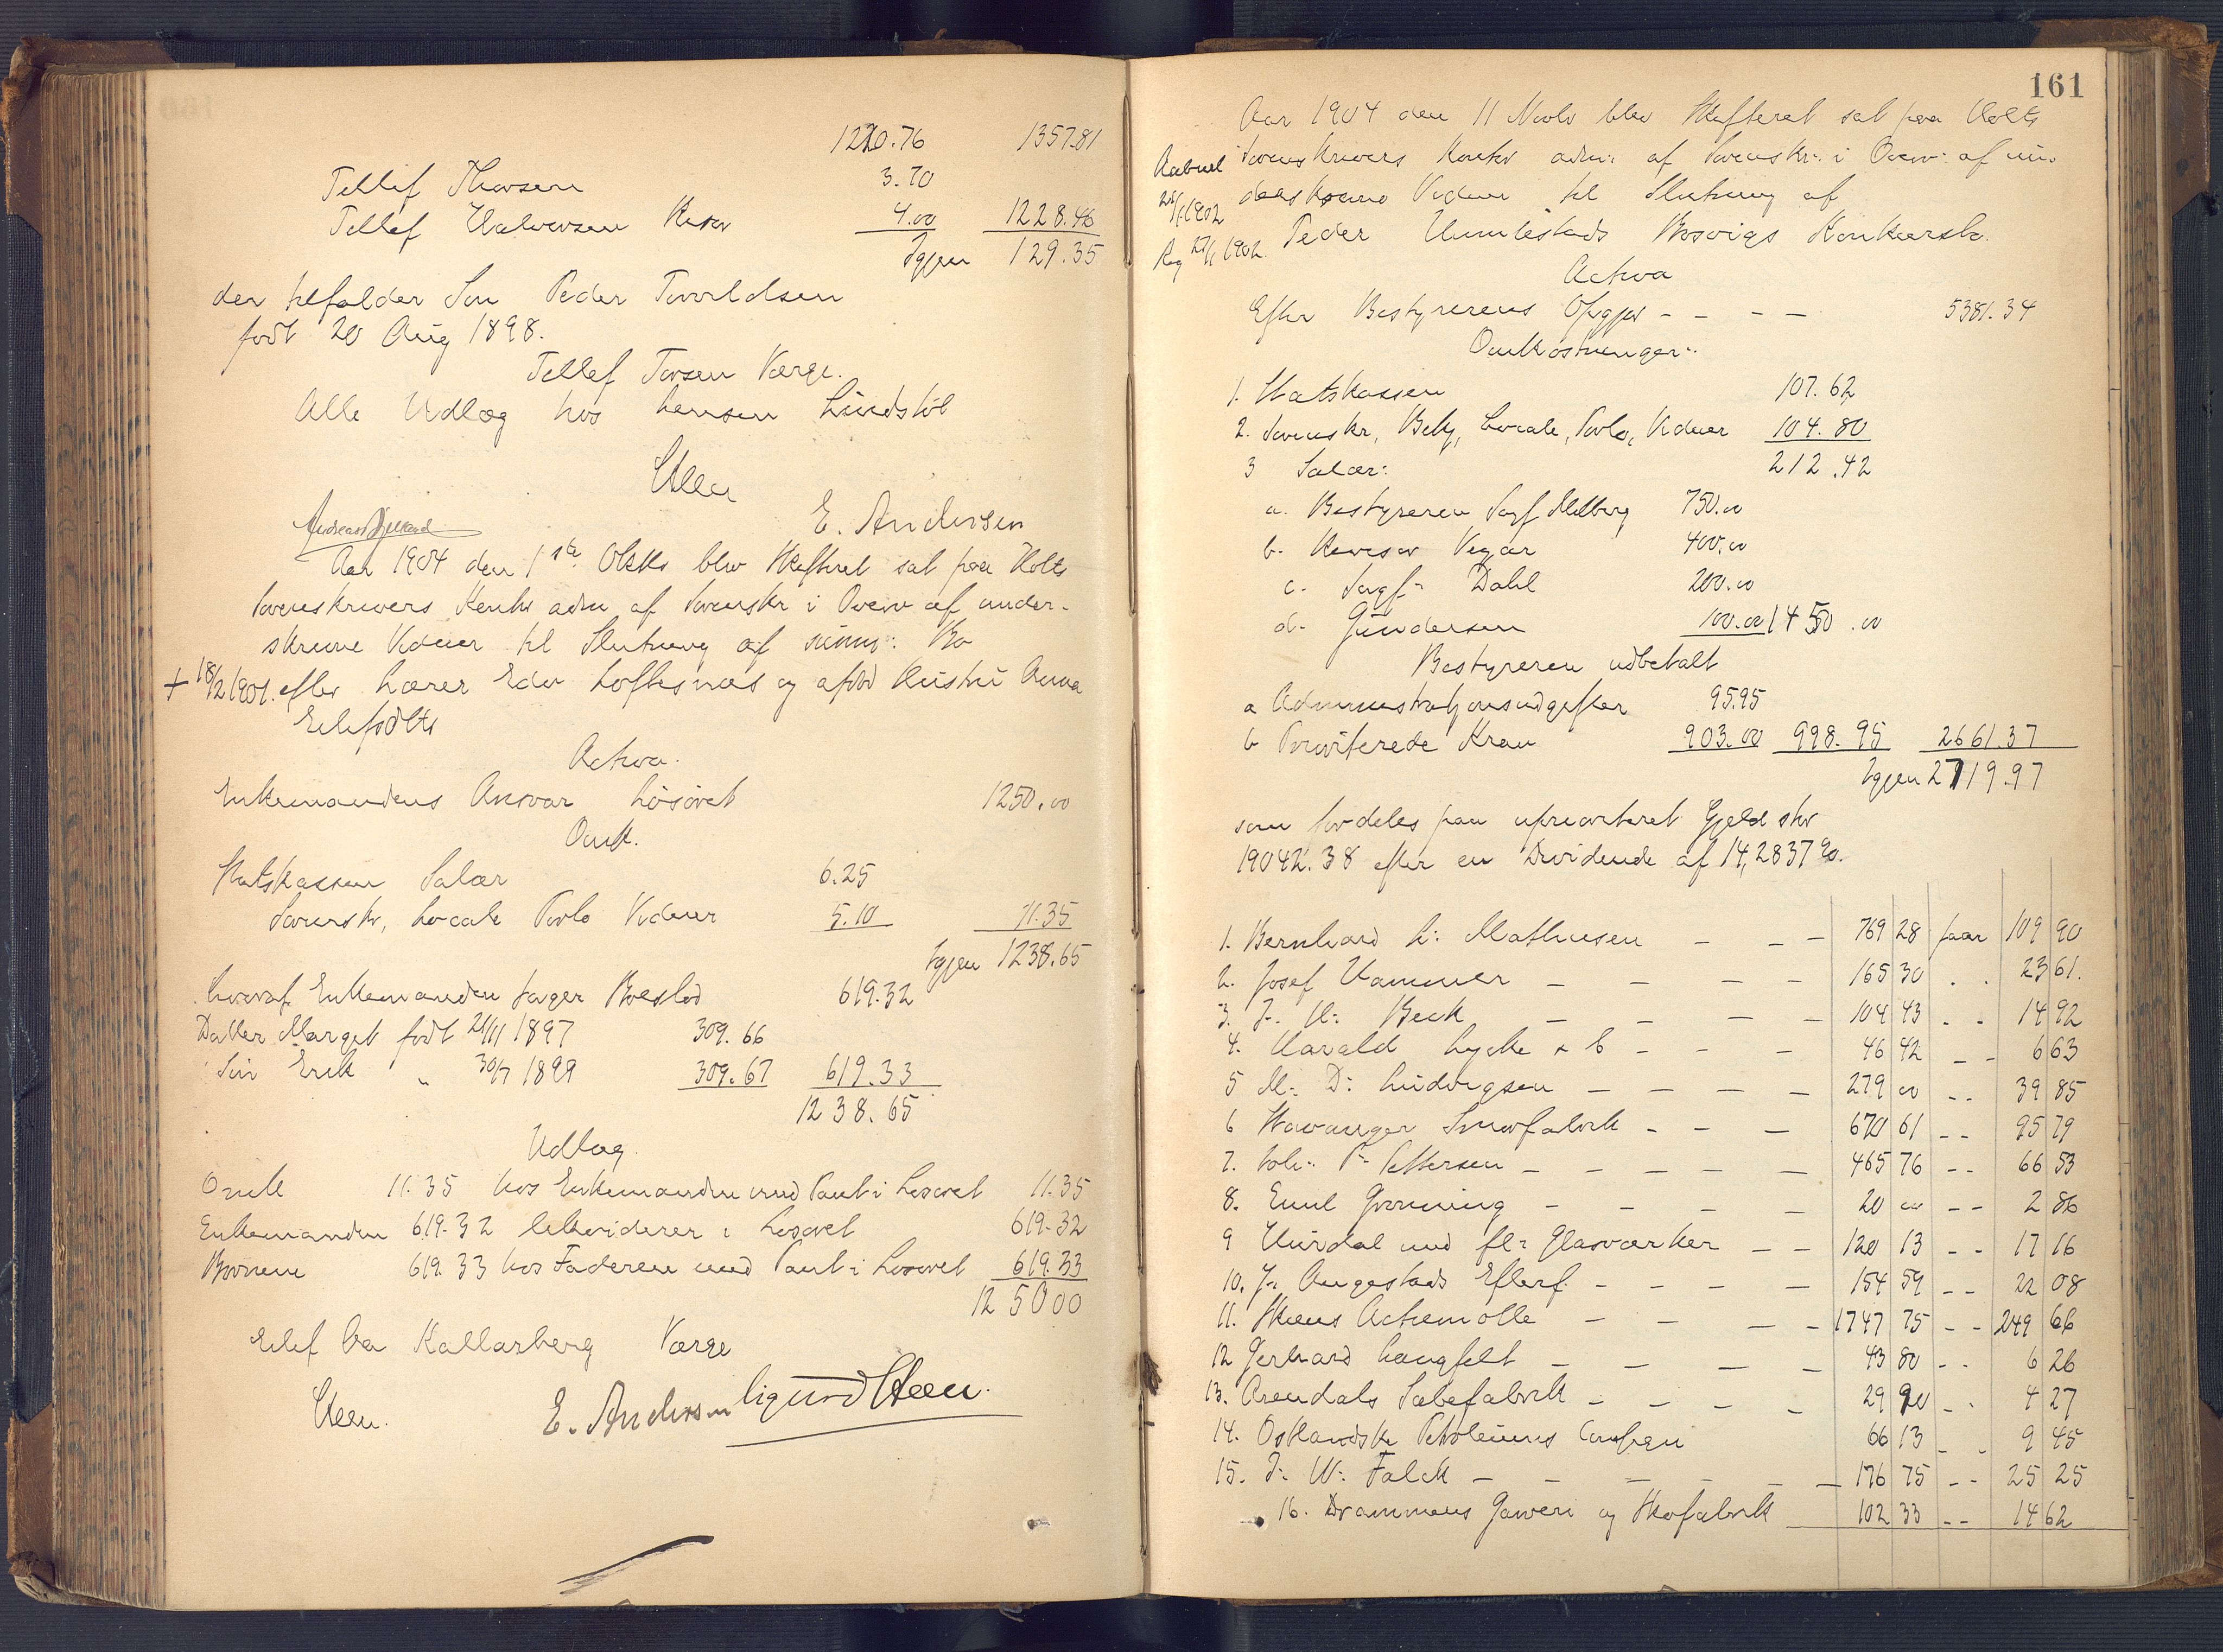 1220.76 1357.81
Tellef Thorsen 3.70
Tellef Halvorsen 4.00 1228.46
Igjen 129.35
der tilfalder Søn Peder Torvildsen
født 20 Aug 1898.
Tellef Torsen Værge.
Alle Udlæg hos Lindstøl
Steen
E. Andersen
Aar 1904 den 1ste Oktb blev Skifteret sat paa Holts
Sorenskrivers Kontor adm af Sorenskr i Overv af under-
skrevne Vidner til Slutning af summ: Bo
+ 18/2 1901. efter Lærer Eder Loftesnæs og afdød Hustru Anna
Eilefsdtr
Activa.
Enkemandens Ansvar Løsøret 1250.00
Omk.
Statskassen Salær 6.25
Sorenskr, Locale Prolo Vidner 5.10 11.35
Igjen 1238.65
hvoraf Enkemanden tager Boeslod 619.32
Datter Margit født 21/11 1897 309.66
Søn Erik " 30/7 1899 309.67 619.33
1238.65
Udlæg
Omk 11.35 hos Enkemanden med Pant i Løsøret 11.35
Enkemanden 619.32 likviderer i Løsøret 619.32
Børnene 619.33 hos Faderen med Pant i Løsøret 619.33
125000
Eilef Aa Kallarberg Værge
Steen. E. Andersen Sigurd Steen.
161
Aar 1904 den 11 Novb blev Skifteret sat paa Holts
Sorenskrivers Kontor adm: af Sorenskr: i Overv: af un-
derskrevne Vidner til Slutning af
Peder Humlestads Bosvigs Konkursbo.
Aabnet
1902
Reg 27/1 1902.
Activa
Efter Bestyrerens Opgjør - - - - 5381.34
Omkostninger:
1. Statskassen 107.62
2. Sorenskr, Bekj, Locale, Prolo, Vidner 104.80
3 Salær: 212.42
a. Bestyreren Sagf Melberg 750.00
b. Revisor Vegar 400.00
c. Sagf: Dahl 200.00
d. Gundersen 100.00 1450.00
Bestyreren udbetalt
a Administrationsudgifter 95.95
b Privilerede Krav 903.00 998.95 2661.37
Igjen 2719.97
som fordeles paa uprioriteret Gjæld stor
19042.38 efter en Dividende af 14,2837 %.
1. Bernhard L: Mathiesen - - - 769 28 faar 109 90
2. Josef Hammer - - - - 165 30 . . 23 61.
3. J. H: Beck - - - - 104 43 - - 14 92
4. Harald Lycke & C - - - 46 42 - - 6 63
5 M: D: Ludvigsen - - - - 279 00 - - 39 85
6 Stavanger Smørfabrik - - - 670 61 - - 95 79
7. Joh: P: Pettersen - - - - - 465 76 - - 66 53
8. Emil Grønning - - - - 20 00 - - 2 86
9 Hurdal med fl: Glasværker - - 120 13 - - 17 16
10. J. Augestads Efterf. - - - - 154 59 - - 22 08
11. Skiens Actiemølle - - - - 1747 75 - - 249 66
12 Gerhard Langfelt - - - - 43 80 - - 6 26
13. Arendals Sæbefabrik - - - - 29 90 - - 4 27
14. Østlandske Petroleums Compgni 66 13 - - 9 45
15. J: W: Falck - - - - - - 176 75 - - 25 25
16. Drammens Garveri og Skofabrik 102 33 - - 14 62